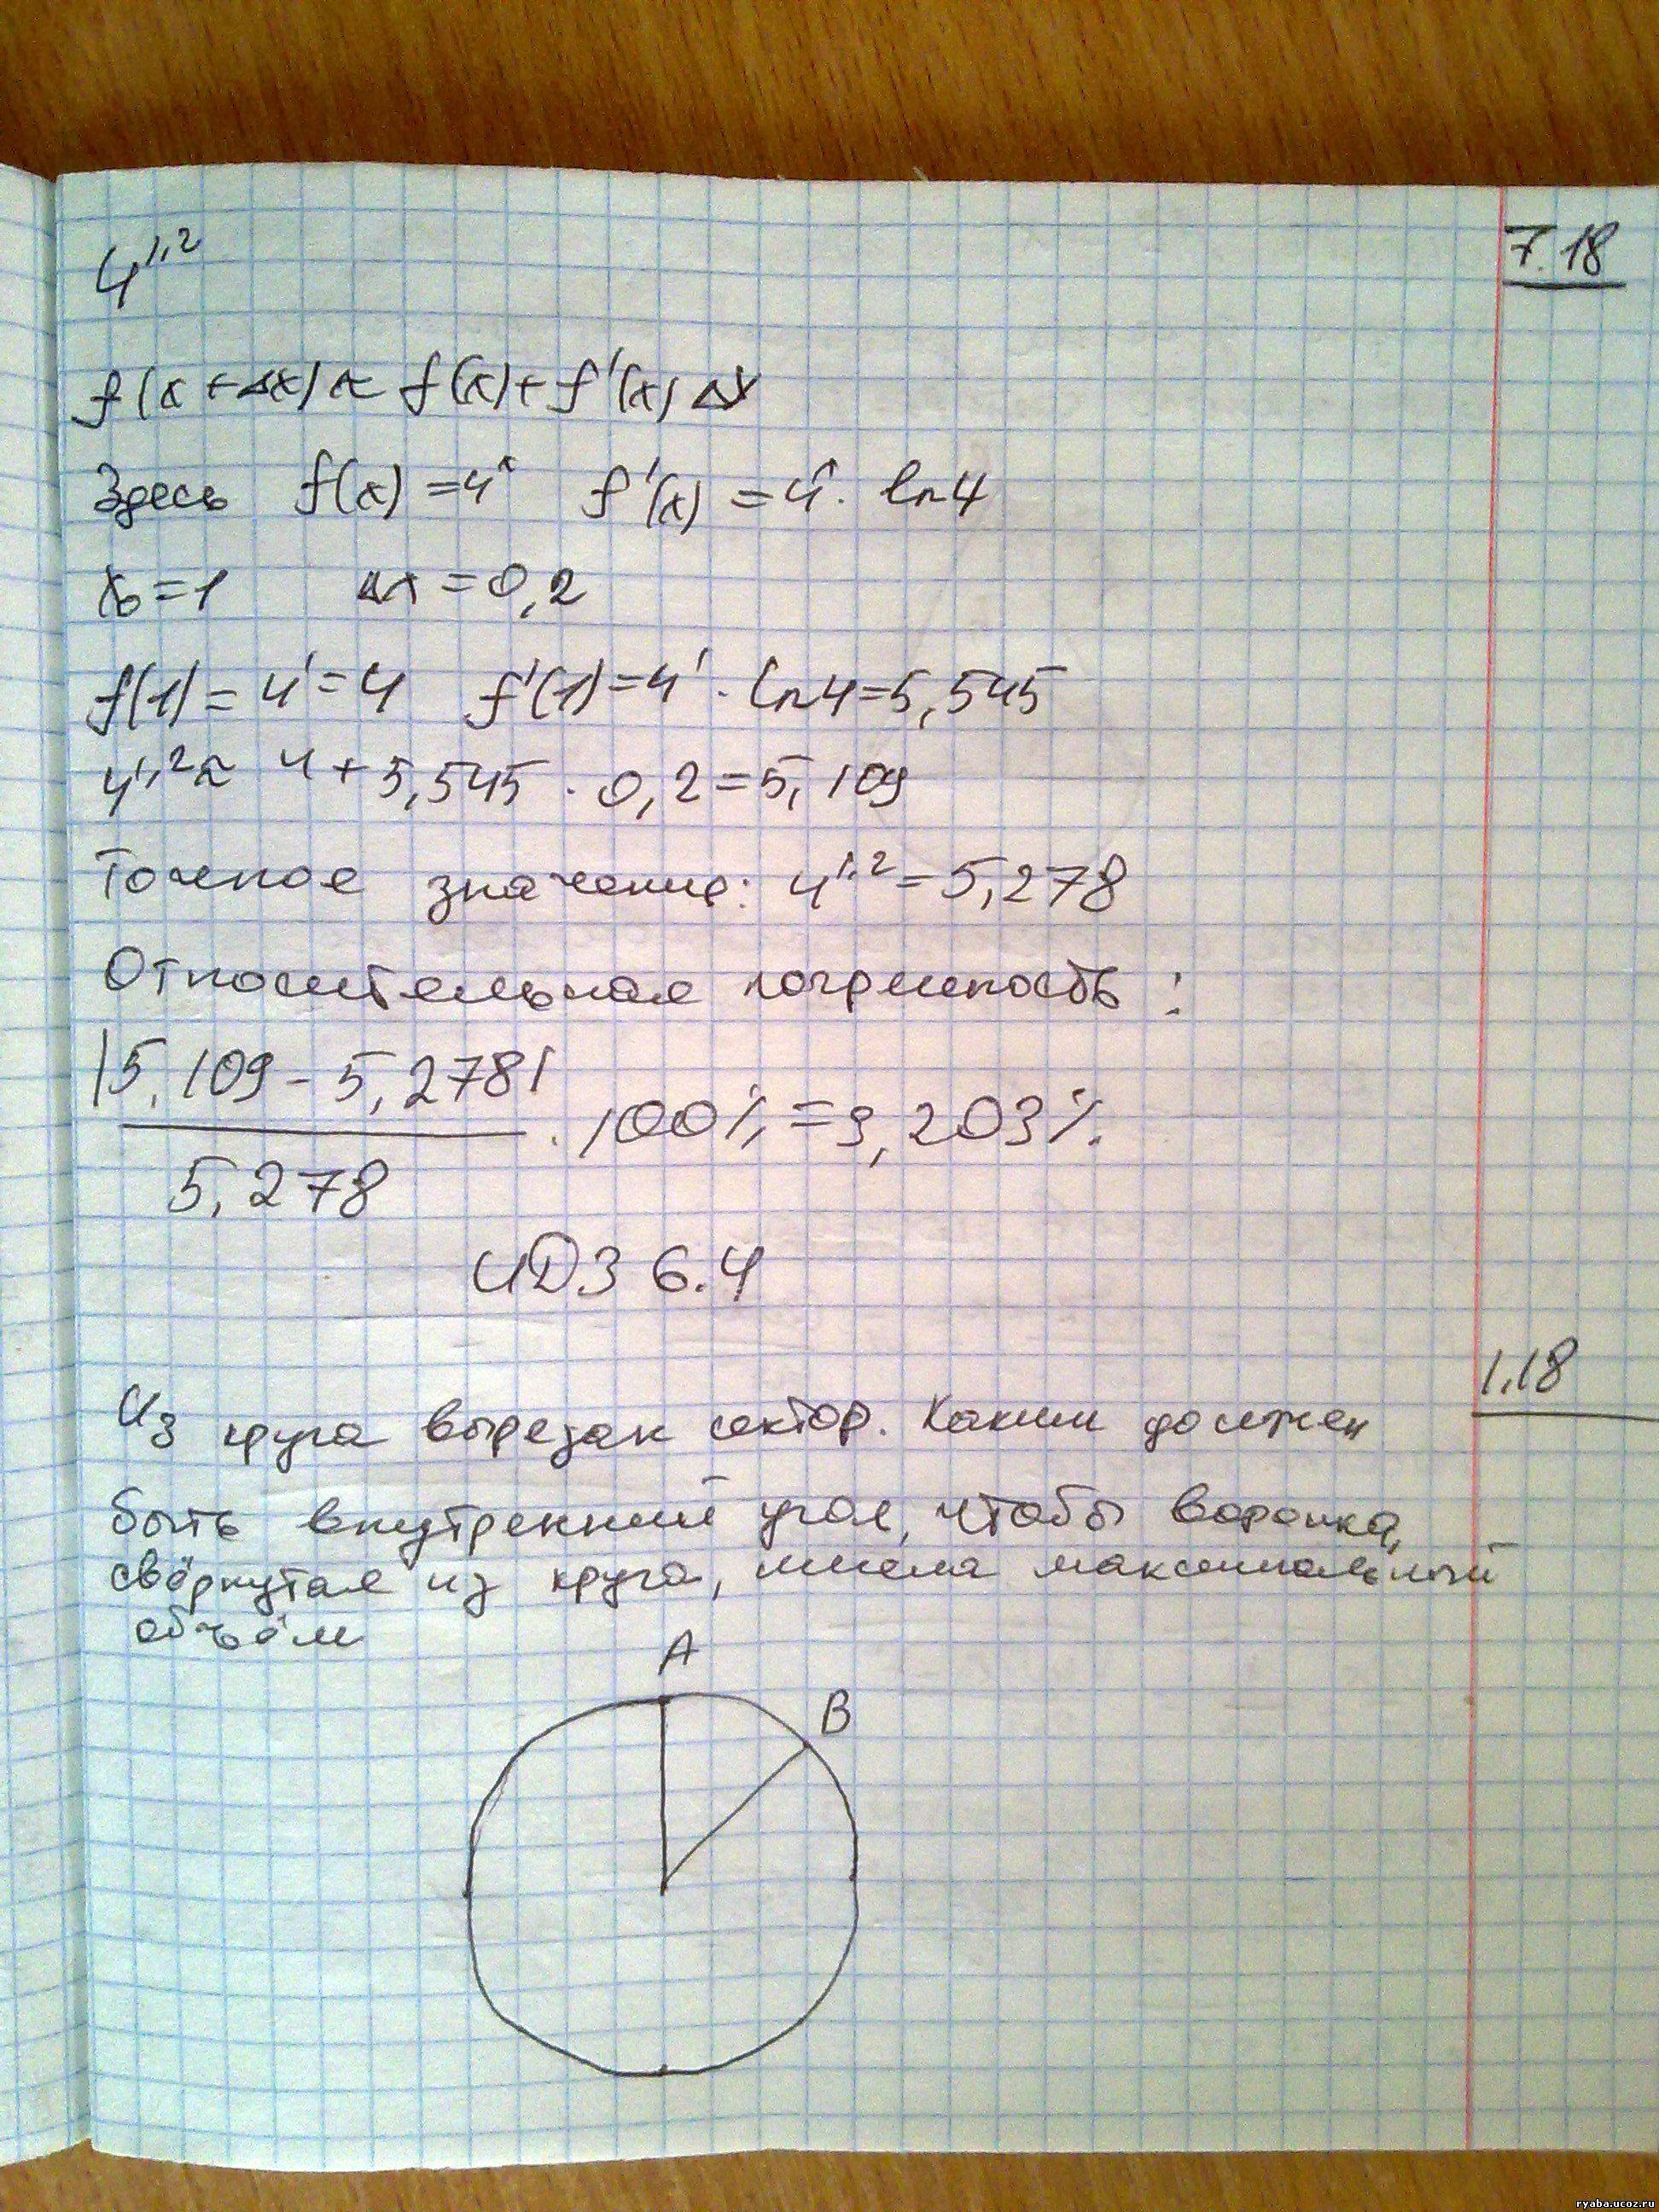 4^1,2
7.18
f(x+Δx)≈f(x)+f'(x)Δx
Здесь f(x)=4^x f'(x)=4^x·ln4
x₀=1 Δx=0,2
f(1)=4^1=4 f'(1)=4^1·ln4=5,545
4^1,2≈4+5,545·0,2=5,109
Точное значение: 4^1,2=5,278
Относительная погрешность:
|5,109-5,278|
·100%=3,203%
5,278
ИДЗ 6.4
1.18
Из круга вырезан сектор. Каким должен
быть внутренний угол, чтобы воронка,
свёрнутая из круга, имела максимальный
объём
A
B
ryaba.ucoz.ru